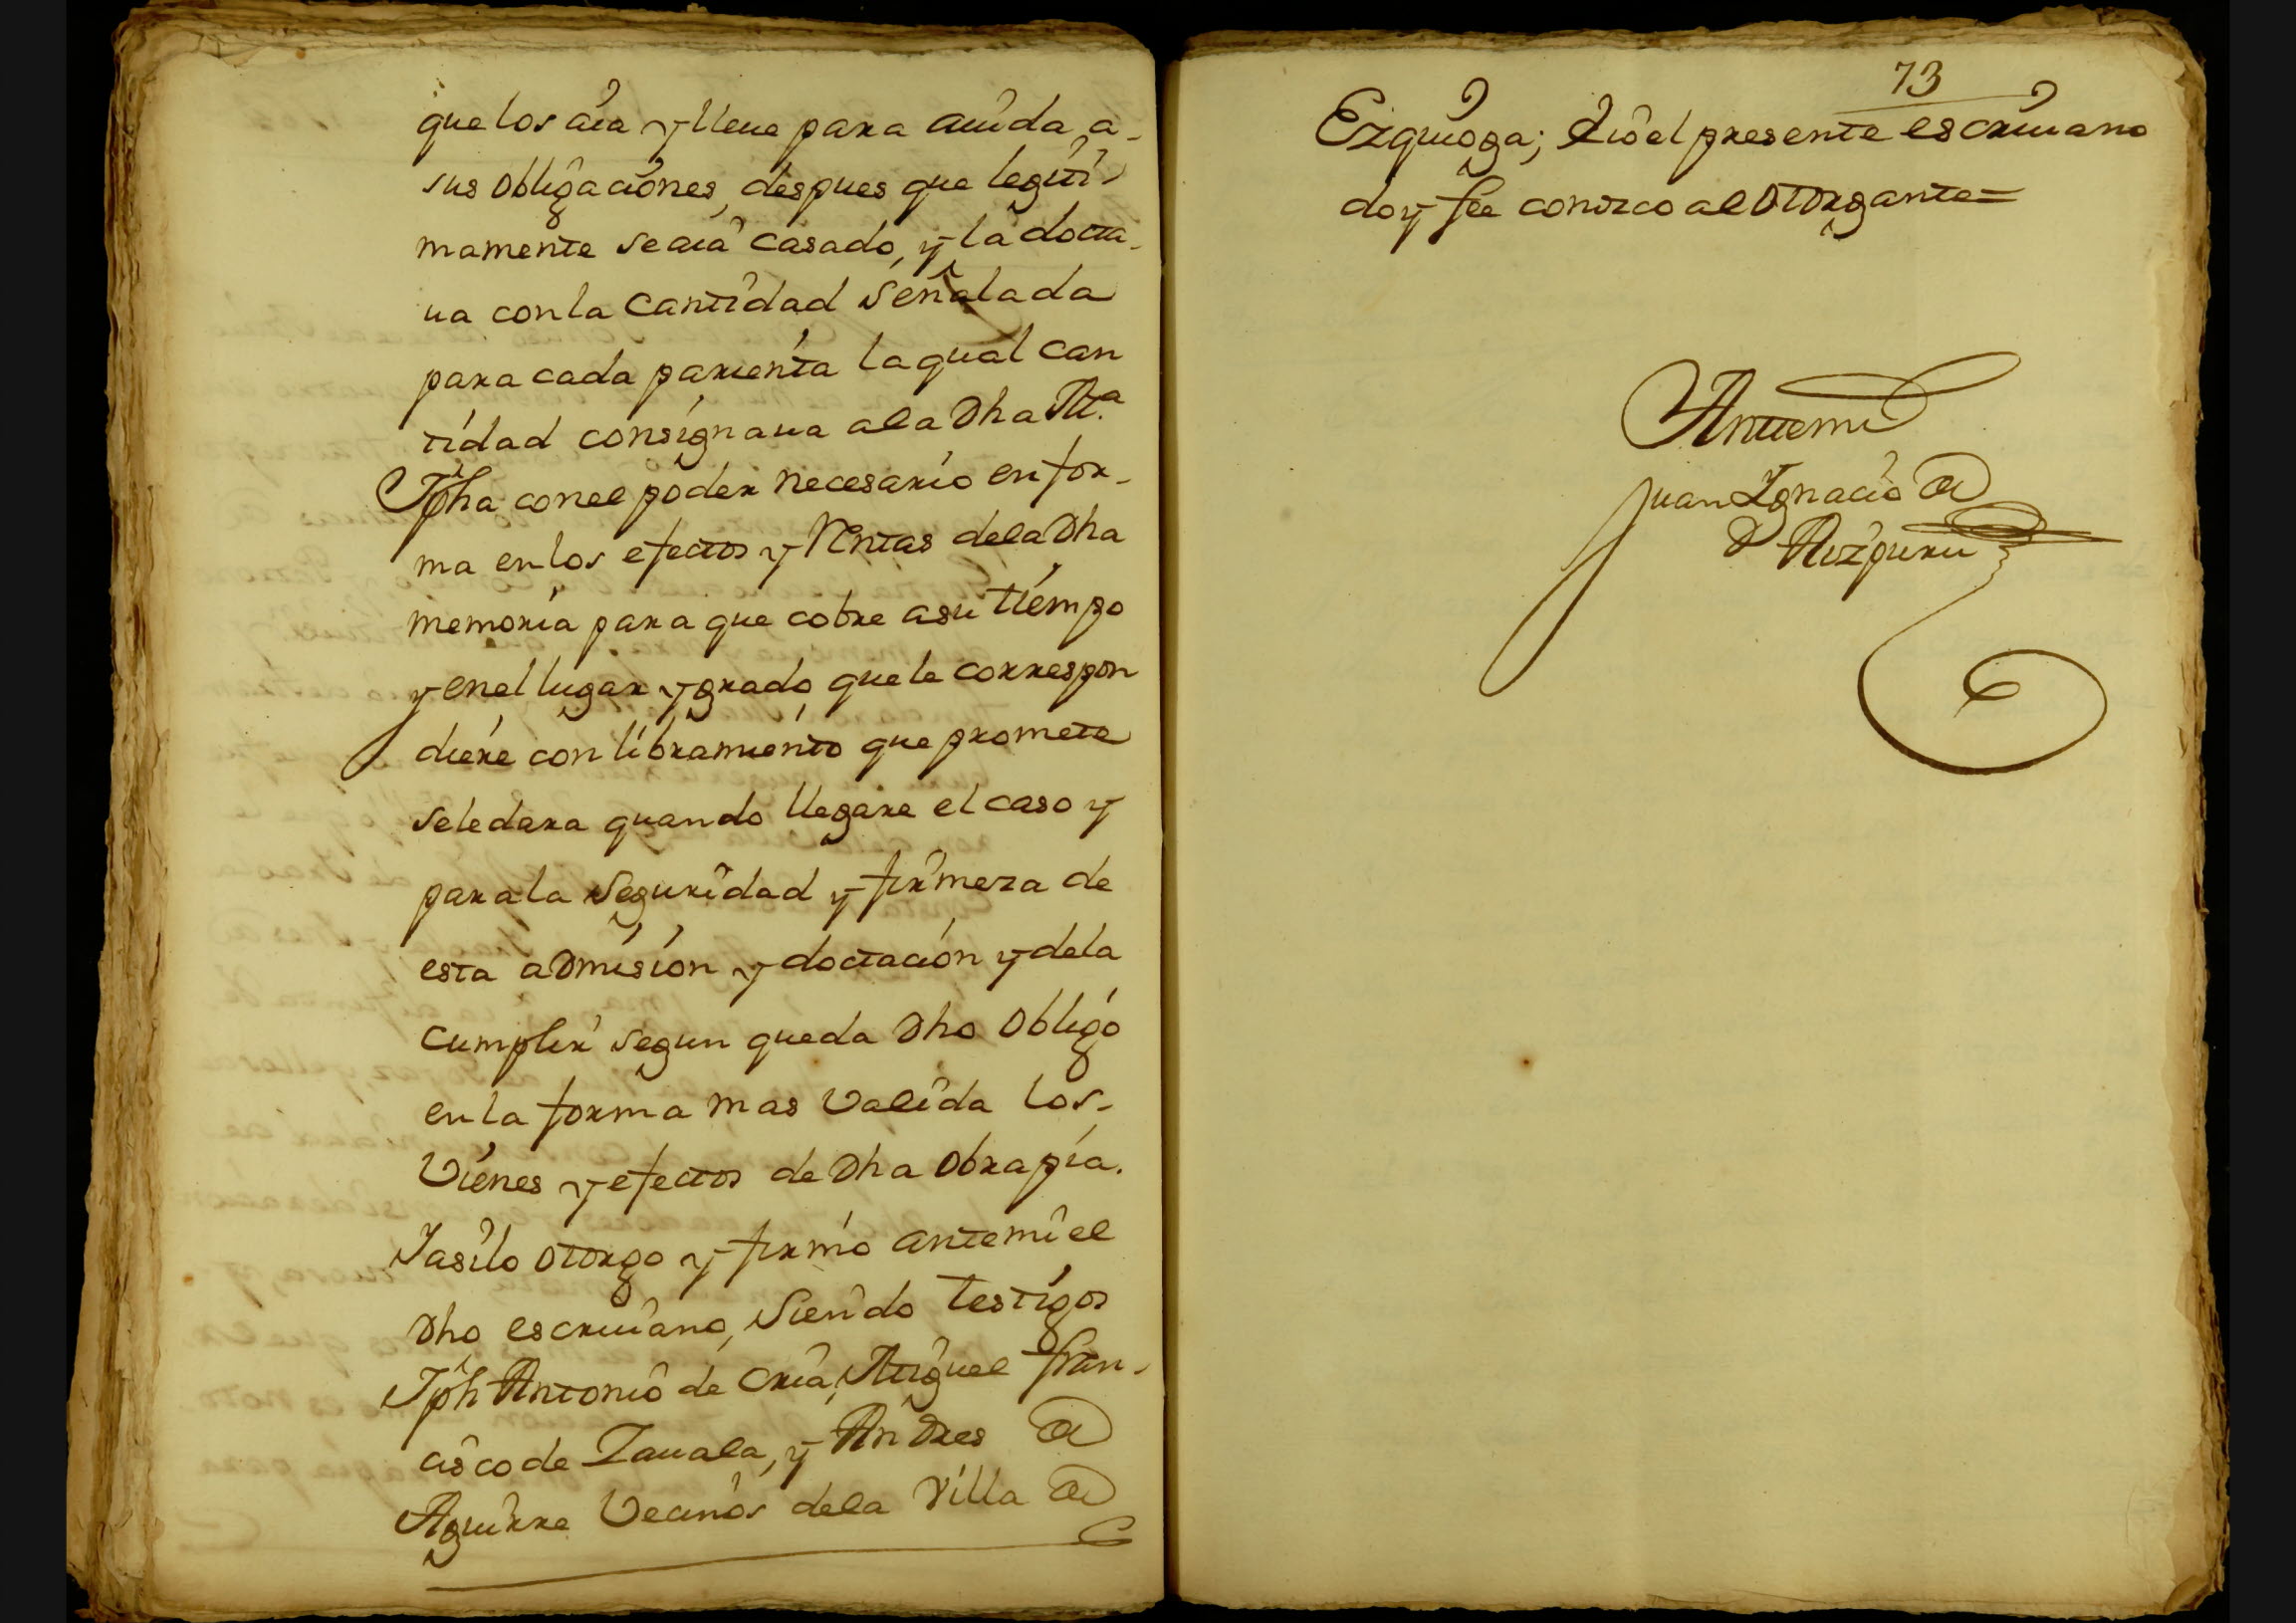 que los aia y lleue para aiuda a-
sus obligaciones, despues que legiti-
mamente se aia casado, y la docta-
ua con la cantidad señalada
para cada parienta la qual can
tidad consignaua a la Dha M.ª
Jpha con el poder necesario en for-
ma en los efectos y Rentas de la Dha
memoria para que cobre a su tiempo
y en el lugar y grado que le correspon
diere con libramiento que promete
se le dara quando llegare el caso y
para la seguridad y firmeza de
esta admision y doctacion y de la
cumplir segun queda Dho obligó
en la forma mas valida los-
Vienes y efectos de Dha obra pia.
Y asi lo otorgo y firmó ante mi el
Dho escriuano, siendo testigos
Jph Antonio de Oria, Miguel Fran-
cisco de Zauala, y Andres de
Aguirre Vecinos de la Villa de
73
Ezquioga; Y io el presente escriuano
doy fee conozco al otorgante=
Antemi
Juan Ignacio de
Aizpuru